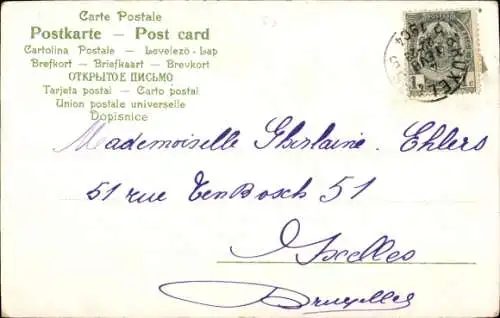 Carte Postale
Postkarte — Post card
Cartolina Postale — Levelező-Lap
Brefkort — Briefkaart — Brevkort
ОТКРЫТОЕ ПИСЬМО
Tarjeta postal — Carto postal
Union postale universelle
Dopisnice
Mademoiselle Ghislaine. Ehlers
51 rue TenBosch 51
Ixelles
Bruxelles
1904